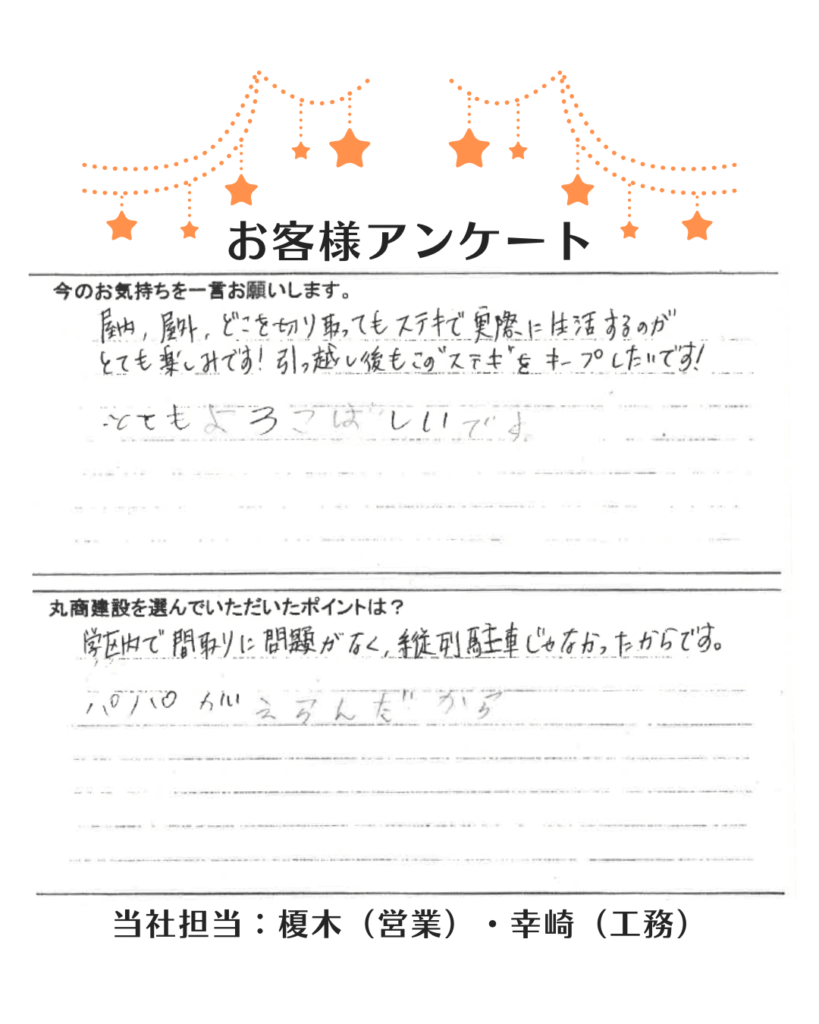 お客様アンケート
今のお気持ちを一言お願いします。
屋内,屋外,どこを切り取ってもステキで実際に生活するのが
とても楽しみです!引っ越し後もこの"ステキ"をキープしたいです!
とてもよろこばしいです
丸商建設を選んでいただいたポイントは?
学区内で間取りに問題がなく,縦列駐車じゃなかったからです。
パパがえらんだから
当社担当:榎木(営業)・幸崎(工務)